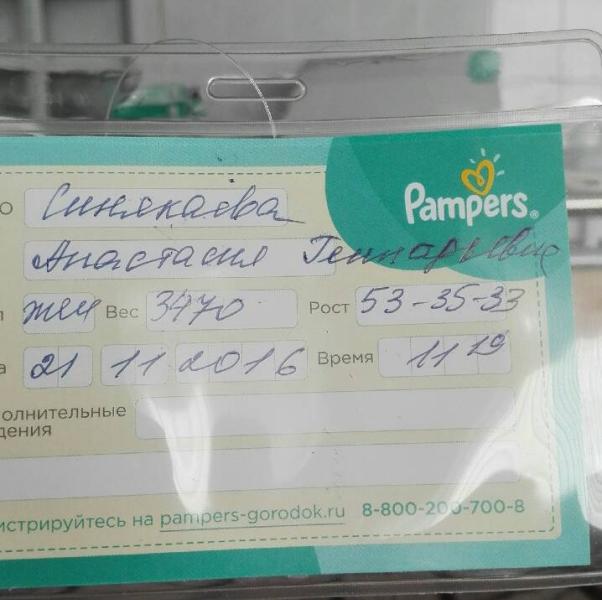 Pampers®
О Синякаева
Анастасия Геннадьевна
л жен Вес 3470 Рост 53-35-33
а 21 11 2016 Время 11 19
олнительные
дения
истрируйтесь на pampers-gorodok.ru 8-800-200-700-8